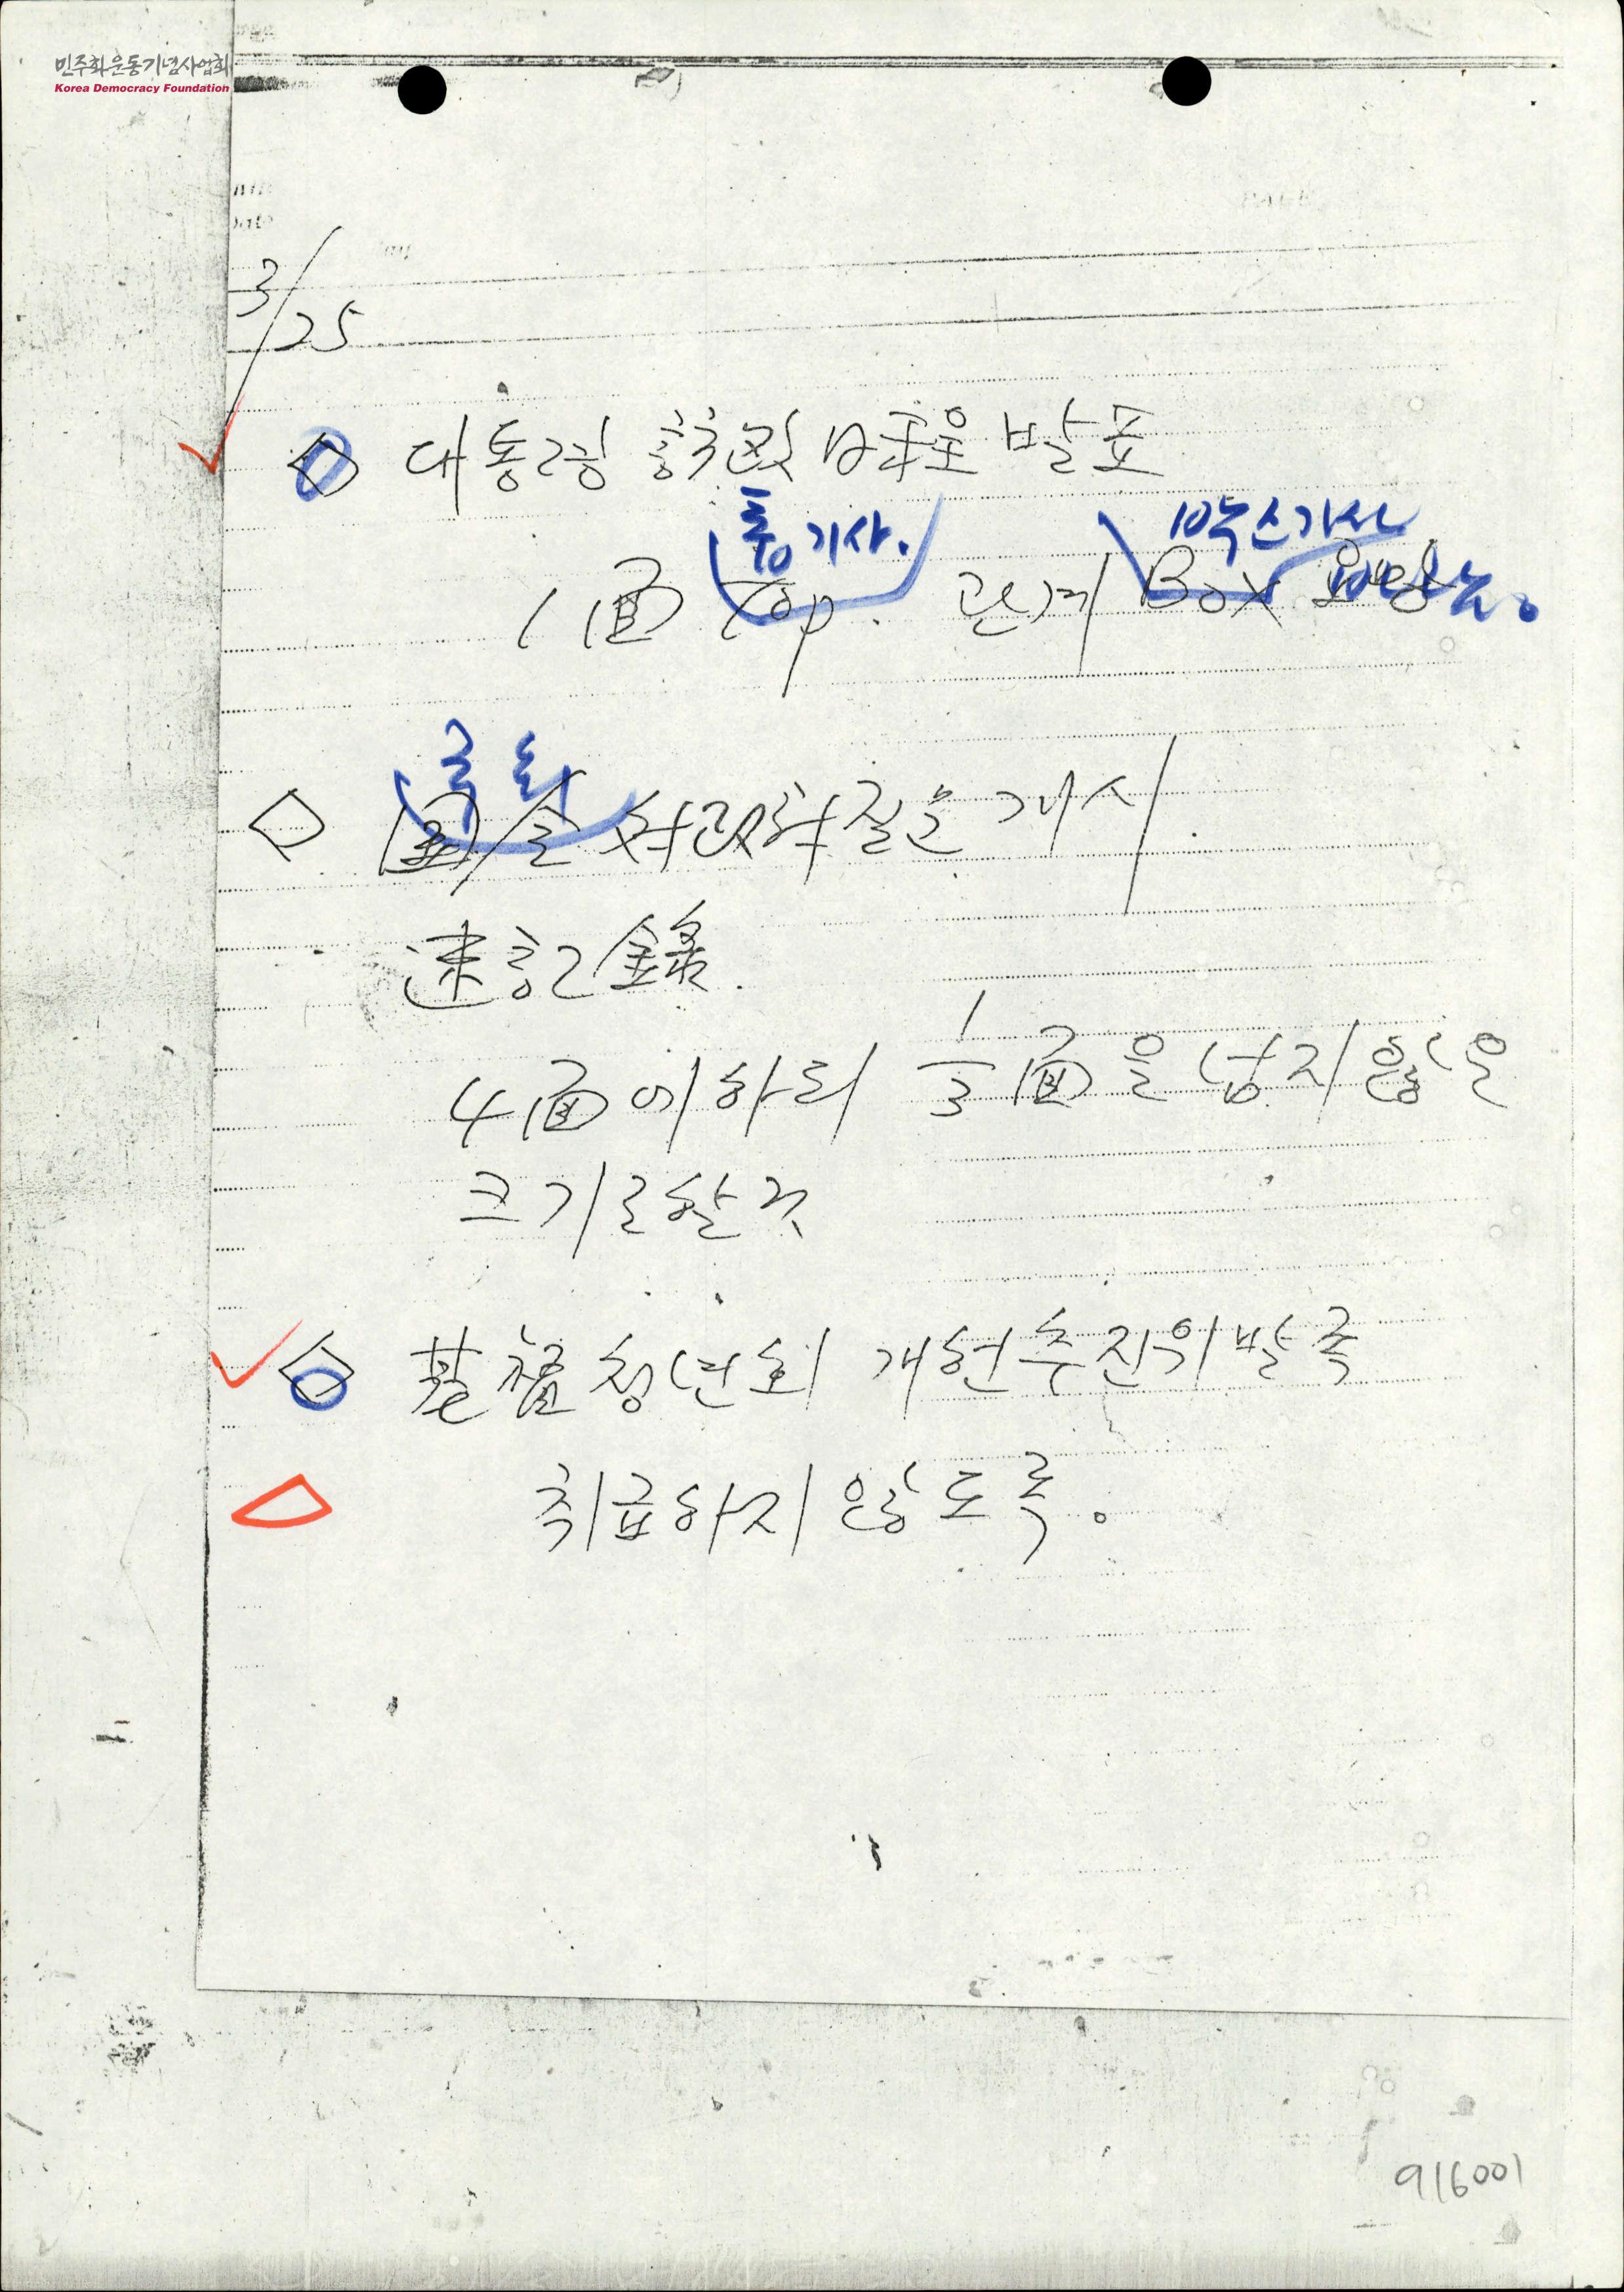 민주화운동기념사업회
Korea Democracy Foundation
3/25
대통령 訪歐 日程 발표
톱기사. 박스기사
1面 Top. 관계 Box
국회
国会 対政府 질문 개시.
速記錄.
4面이하의 1/3面을 넘지 않은
크기로 할 것
基督청년회 개헌추진위 발족
취급하지 않도록.
916001